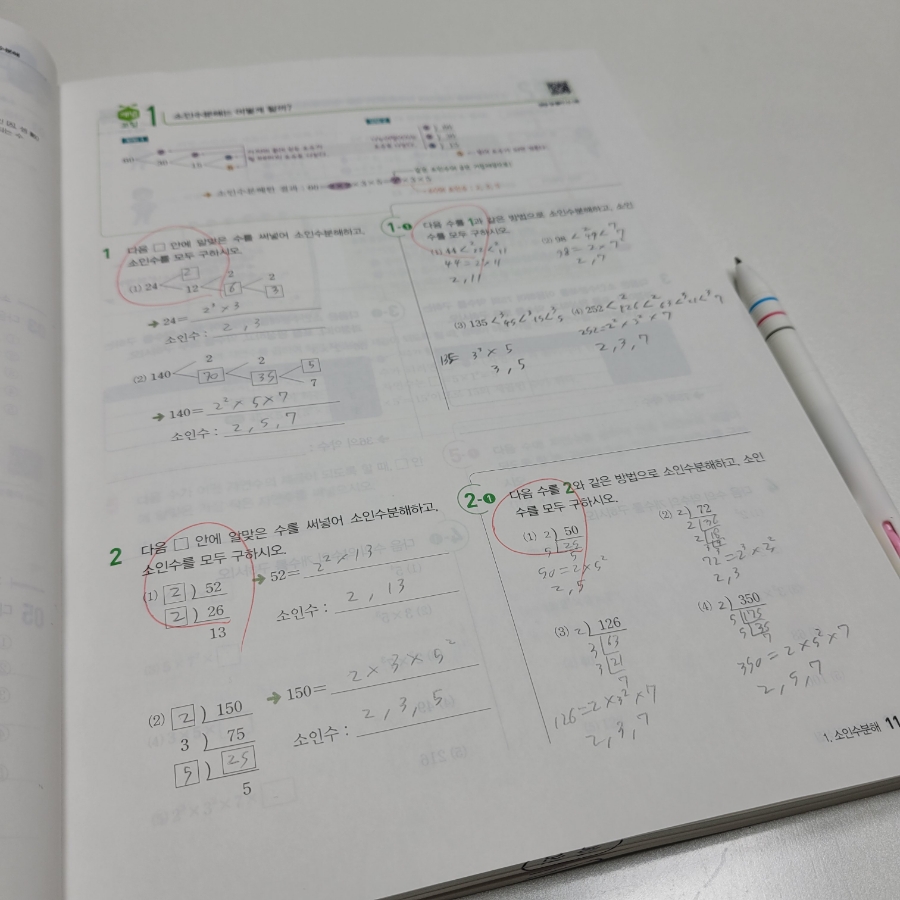 개념
1 소인수분해는 어떻게 할까?
60
30
15
→ 소인수분해한 결과 : 60=
1 다음 □ 안에 알맞은 수를 써넣어 소인수분해하고,
소인수를 모두 구하시오.
(1) 24 < 2 12 < 2 6 < 2 3
→ 24= 2³×3
소인수 : 2, 3
(2) 140 < 2 70 < 2 35 < 5 7
→ 140= 2²×5×7
소인수 : 2, 5, 7
1-1 다음 수를 1과 같은 방법으로 소인수분해하고, 소인
수를 모두 구하시오.
(1) 44
2, 11
(2) 98
98 = 2×7²
2, 7
(3) 135 < 3 45 < 3 15 < 3 5
135= 3³×5
3, 5
(4) 252 < 2 126 < 2 63 < 3 21 < 3 7
252=2²×3²×7
2, 3, 7
2 다음 □ 안에 알맞은 수를 써넣어 소인수분해하고,
소인수를 모두 구하시오.
(1) 2 ) 52
2 ) 26
13
→ 52= 2²×13
소인수 : 2, 13
(2) 2 ) 150
3 ) 75
5 ) 25
5
→ 150= 2×3×5²
소인수 : 2, 3, 5
2-1 다음 수를 2와 같은 방법으로 소인수분해하고, 소인
수를 모두 구하시오.
(1) 2 ) 50
5 25
5
50=2×5²
2, 5
(2) 2 ) 72
2 36
2 18
72=2³×3²
2, 3
(3) 2 ) 126
3 63
3 21
7
126=2×3²×7
2, 3, 7
(4) 2 ) 350
5 175
5 35
7
350=2×5²×7
2, 5, 7
1. 소인수분해 11